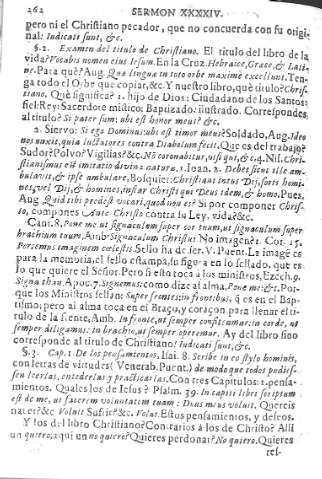 262 SERMON XXXXIV.
pero ni el Christiano pecador, que no concuerda con su origi-
nal: Indicati sunt, &c.
§. 2. Examen del titulo de Christiano. El titulo del libro de la
vida? Vocabis nomen eius Iesum. En la Cruz. Hebraice, Græce, & Lati-
ne. Para què? Aug. Qua lingua in toto orbe maxime excellunt. Ten-
ga todo el Orbe que copiar, &c. Y nuestro libro, què titulo? Chris-
tiano. Què significa? 1. hijo de Dios: Ciudadano de los Santos:
fiel: Rey: Sacerdote mistico: Baptizado: ilustrado. Correspondes
al titulo? Si pater sum: ubi est honor meus? &c.
2. Siervo: Si ego Dominus: ubi est timor meus? Soldado, Aug. Ideo
nos unxit, quia luctatores contra Diabolum fecit. Que es del trabajo?
Sudor? Polvo? Vigilias? &c. No coronabitur, nisi qui, &c. 4. Nis. Chris-
tianismus est imitatio divinæ naturæ, 1. Ioan. 2. Debet sicut ille am-
bulavit, & ipse ambulare, Bosquie: Christianus totus Dij, fortis homi-
nes, vel Dij, & homines, instar Christi qui Deus idem, & homo. Pues,
Aug. Quid tibi prodest vocari, quod non es? Si por componer Chris-
to, compones Ante Christo contra su Ley, vida? &c.
Cant. 8. Pone me ut signaculum super cor tuum, ut signaculum super
brachium tuum, Amb. Signaculum Christus No imagen? 1. Cor. 15.
Portemus imaginem cœlestis. Sello ha de ser. V. Puent. La imagẽ es
para la memoria, el sello estampa, su figura en lo sellado, que es
lo que quiere el Señor. Pero si esto toca à los ministros, Ezech. 9.
Signa thau, Apoc. 7. Signemus: como dize al alma, Pone me: &c. Por-
que los Ministros sellan: Super frontes: in frontibus, q̃ es en el Bap-
tismo; pero al alma toca en el Braço, y coraçon para llenar el ti-
tulo de la frente, Amb. In fronte, ut semper confiteamur: in corde, ut
semper diligamus: in brachio, ut semper operemur. Ay del libro sino
corresponde al titulo de Christiano! Iudicati sunt, &c.
§. 3. Cap. 1. De los pensamientos, Isai. 8. Scribe in eo stylo hominis,
con letras de virtudes (Venerab. Puent.) de modo que todos pudies-
sen leerlas, entenderlas y practicarlas. Con tres Capitulos: 1. pensa-
mientos. Quales los de Iesus? Psalm. 39. In capite libri scriptum
est de me, ut facerem voluntatem tuam: Deus meus volui. Quereis
nacer? &c Volui. Sufrir? &c. Volui. Estos pensamientos, y deseos.
Y los del libro Christiano? Contrarios à los de Christo? Allì
un quiero, aqui un no quiero? Quieres perdonar? No quiero. Quieres
res-